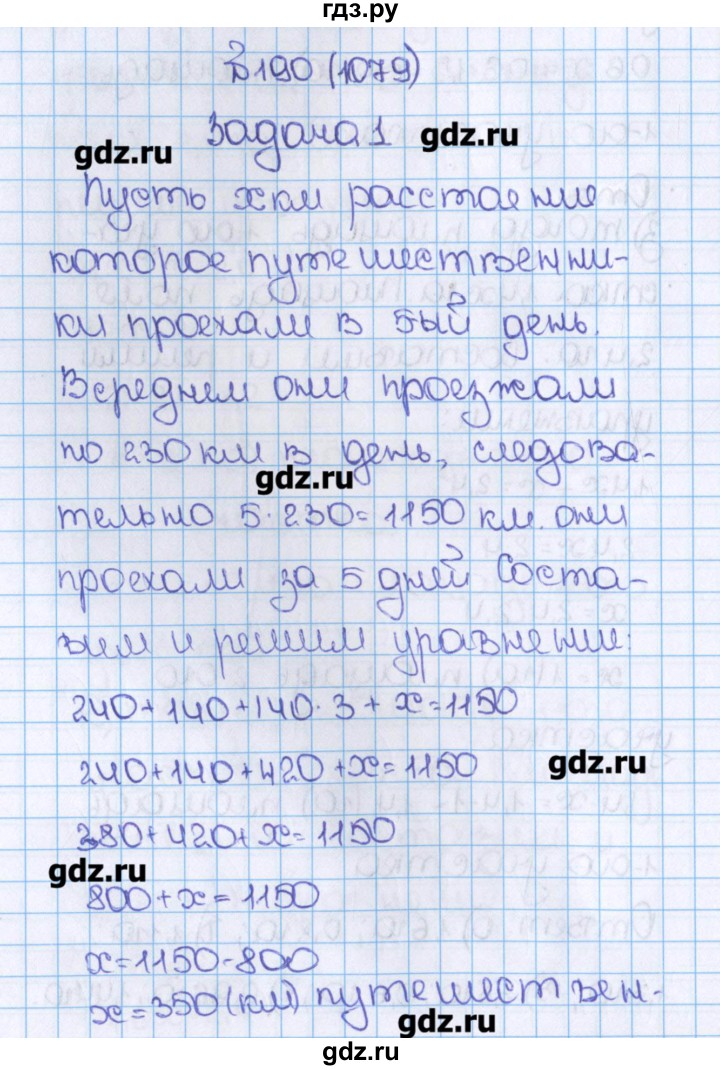 гдз.ру
№190 (1079)
Задача 1
gdz.ru gdz.ru
Пусть x км расстояние
которое путешественни-
ки проехали в 5ый день.
В среднем они проезжали
по 230 км в день, следова-
gdz.ru
тельно 5·230=1150 км. они
проехали за 5 дней Соста-
вим и решим уравнение:
240+140+140·3+x=1150
240+140+420+x=1150
gdz.ru
380+420+x=1150
gdz.ru
800+x=1150
x=1150-800
x=350(км) путешествен-
gdz.ru
gdz.ru